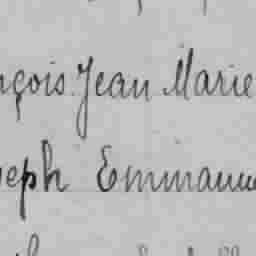 nçois Jean Marie
seph Emmanue